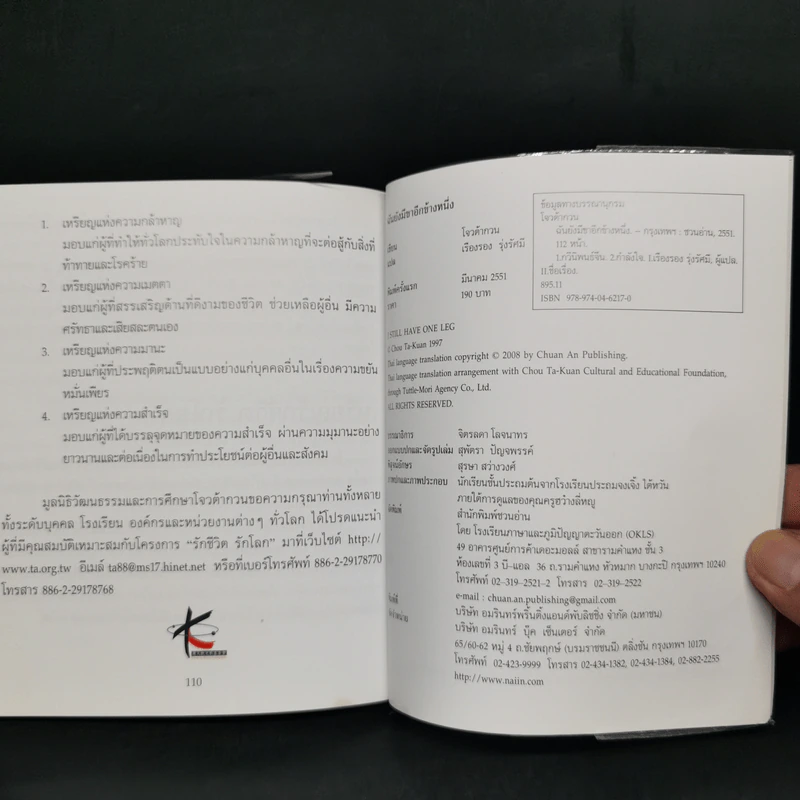 1. เหรียญแห่งความกล้าหาญ
มอบแก่ผู้ที่ทำให้ทั่วโลกประทับใจในความกล้าหาญที่จะต่อสู้กับสิ่งที่
ท้าทายและโรคร้าย
2. เหรียญแห่งความเมตตา
มอบแก่ผู้ที่สรรเสริญด้านที่ดีงามของชีวิต ช่วยเหลือผู้อื่น มีความ
ศรัทธาและเสียสละตนเอง
3. เหรียญแห่งความมานะ
มอบแก่ผู้ที่ประพฤติตนเป็นแบบอย่างแก่บุคคลอื่นในเรื่องความขยัน
หมั่นเพียร
4. เหรียญแห่งความสำเร็จ
มอบแก่ผู้ที่ได้บรรลุจุดหมายของความสำเร็จ ผ่านความมุมานะอย่าง
ยาวนานและต่อเนื่องในการทำประโยชน์ต่อผู้อื่นและสังคม
มูลนิธิวัฒนธรรมและการศึกษาโจวต้ากวนขอความกรุณาท่านทั้งหลาย
ทั้งระดับบุคคล โรงเรียน องค์กรและหน่วยงานต่างๆ ทั่วโลก ได้โปรดแนะนำ
ผู้ที่มีคุณสมบัติเหมาะสมกับโครงการ “รักชีวิต รักโลก” มาที่เว็บไซต์ http://
www.ta.org.tw อีเมล์ ta88@ms17.hinet.net หรือที่เบอร์โทรศัพท์ 886-2-29178770
โทรสาร 886-2-29178768
110
ฉันยังมีขาอีกข้างหนึ่ง
เขียน โจวต้ากวน
แปล เรืองรอง รุ่งรัศมี
พิมพ์ครั้งแรก มีนาคม 2551
ราคา 190 บาท
ข้อมูลทางบรรณานุกรม
โจวต้ากวน
ฉันยังมีขาอีกข้างหนึ่ง. – กรุงเทพฯ : ชวนอ่าน, 2551.
112 หน้า.
1.กวีนิพนธ์จีน. 2.กำลังใจ. I.เรืองรอง รุ่งรัศมี, ผู้แปล.
II.ชื่อเรื่อง.
895.11
ISBN 978-974-04-6217-0
I STILL HAVE ONE LEG
© Chou Ta-Kuan 1997
Thai language translation copyright © 2008 by Chuan An Publishing.
Thai language translation arrangement with Chou Ta-Kuan Cultural and Educational Foundation,
through Tuttle-Mori Agency Co., Ltd.
ALL RIGHTS RESERVED.
บรรณาธิการ จิตรลดา โลจนาทร
ออกแบบปกและจัดรูปเล่ม สุพัตรา ปัญจพรรค์
พิสูจน์อักษร สุรษา สว่างวงศ์
ภาพปกและภาพประกอบ นักเรียนชั้นประถมต้นจากโรงเรียนประถมจงเจิ้ง ไต้หวัน
ภายใต้การดูแลของคุณครูฮว๋างลี่หญู
จัดพิมพ์ สำนักพิมพ์ชวนอ่าน
โดย โรงเรียนภาษาและภูมิปัญญาตะวันออก (OKLS)
49 อาคารศูนย์การค้าเดอะมอลล์ สาขารามคำแหง ชั้น 3
ห้องเลขที่ 3 บี-แอล 36 ถ.รามคำแหง หัวหมาก บางกะปิ กรุงเทพฯ 10240
โทรศัพท์ 02-319-2521-2 โทรสาร 02-319-2522
e-mail : chuan.an.publishing@gmail.com
พิมพ์ที่ บริษัท อมรินทร์พริ้นติ้งแอนด์พับลิชชิ่ง จำกัด (มหาชน)
บริษัท อมรินทร์ บุ๊ค เซ็นเตอร์ จำกัด
65/60-62 หมู่ 4 ถ.ชัยพฤกษ์ (บรมราชชนนี) ตลิ่งชัน กรุงเทพฯ 10170
โทรศัพท์ 02-423-9999 โทรสาร 02-434-1382, 02-434-1384, 02-882-2255
http://www.naiin.com